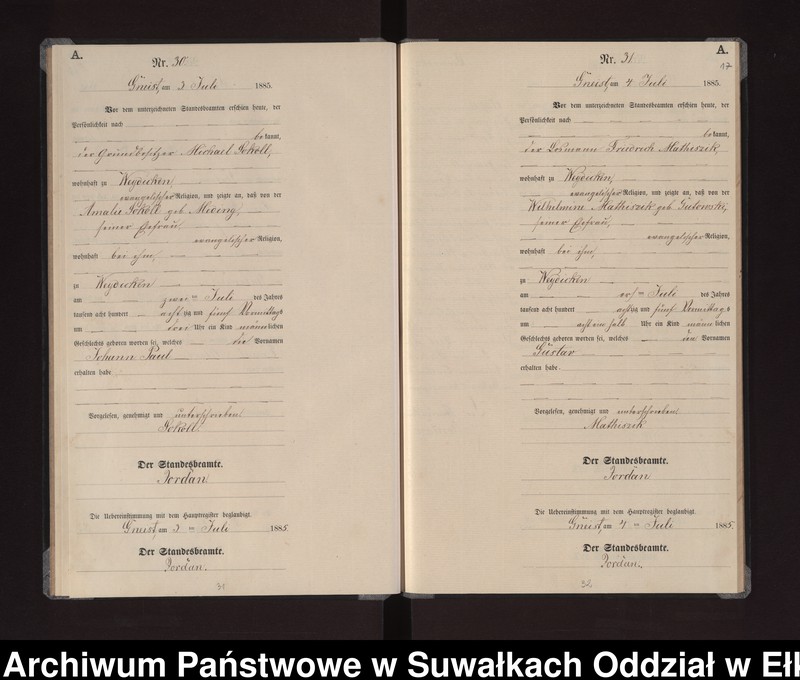 A.
Nr. 30
Gneist, am 3 Juli 1885.
Vor dem unterzeichneten Standesbeamten erschien heute, der
Persönlichkeit nach
bekannt,
der Grundbesitzer Michael Sokoll,
wohnhaft zu Wydicken,
evangelischer Religion, und zeigte an, daß von der
Amalie Sokoll geb.
seiner Ehefrau,
evangelischer Religion,
wohnhaft bei ihm,
zu Wydicken
am zwei ten Juli des Jahres
tausend acht hundert achtzig und fünf Vormittags
um drei Uhr ein Kind männlichen
Geschlechts geboren worden sei, welches die Vornamen
Johann Paul
erhalten habe
Vorgelesen, genehmigt und unterschrieben
Sokoll.
Der Standesbeamte.
Jordan
Die Uebereinstimmung mit dem Hauptregister beglaubigt.
Gneist, am 3 ten Juli 1885.
Der Standesbeamte.
Jordan.
31
A.
17
Nr. 31
Gneist, am 4 Juli 1885.
Vor dem unterzeichneten Standesbeamten erschien heute, der
Persönlichkeit nach
bekannt,
der Losmann Friedrich Mathiszik,
wohnhaft zu Wydicken,
evangelischer Religion, und zeigte an, daß von der
Wilhelmine Mathiszik geb. Gutowski,
seiner Ehefrau,
evangelischer Religion,
wohnhaft bei ihm,
zu Wydicken
am ersten Juli des Jahres
tausend acht hundert achtzig und fünf Vormittags
um acht ein halb Uhr ein Kind männlichen
Geschlechts geboren worden sei, welches den Vornamen
Gustav
erhalten habe
Vorgelesen, genehmigt und unterschrieben
Mathiszik
Der Standesbeamte.
Jordan
Die Uebereinstimmung mit dem Hauptregister beglaubigt.
Gneist, am 4 ten Juli 1885.
Der Standesbeamte.
Jordan.
Archiwum Państwowe w Suwałkach Oddział w Ełk